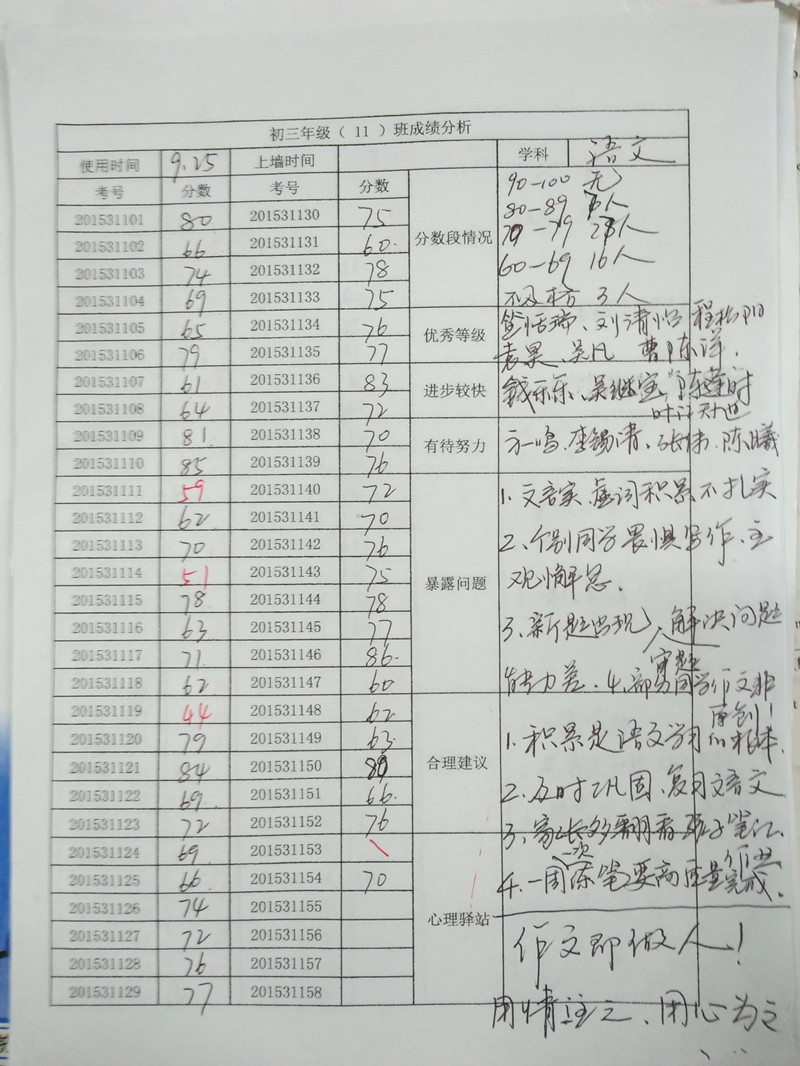 初三年级（ 11 ）班成绩分析
使用时间 9.25 上墙时间 学科 语文
考号 分数 考号 分数
201531101 80 201531130 75
201531102 66 201531131 60.
201531103 74 201531132 78
201531104 69 201531133 75
201531105 65 201531134 76
201531106 79 201531135 77
201531107 61 201531136 83
201531108 64 201531137 72
201531109 81 201531138 70
201531110 85 201531139 76
201531111 59 201531140 72
201531112 62 201531141 70
201531113 70 201531142 76
201531114 51 201531143 75
201531115 78 201531144 78
201531116 63 201531145 77
201531117 71 201531146 86.
201531118 62 201531147 60
201531119 44 201531148 62
201531120 79 201531149 63
201531121 84 201531150
201531122 69 201531151 66.
201531123 72 201531152 76
201531124 69 201531153
201531125 66 201531154 70
201531126 74 201531155
201531127 72 201531156
201531128 76 201531157
201531129 77 201531158
分数段情况
90-100 无
80-89 人
70-79 人
60-69 16人
不及格 3人
优秀等级
刘清 程
袁昊、吴凡 曹 洋.
进步较快
钱乐乐、吴继宝
有待努力
方一鸣. 李锡清、张伟. 陈曦
暴露问题
1. 文言实、虚词积累不扎实
2、个别同学畏惧写作、主
观懒惰.
3、新题出现、解决问题
审题
能力差. 4、部分同学作文非
原创！
合理建议
1. 积累是语文学习的根本.
2. 及时巩固、复习文言文
3、家长多翻看孩子笔记.
一次 作业
4. 一周 随笔要高质量完成.
心理驿站
作文即做人！
用情 之、用心为之